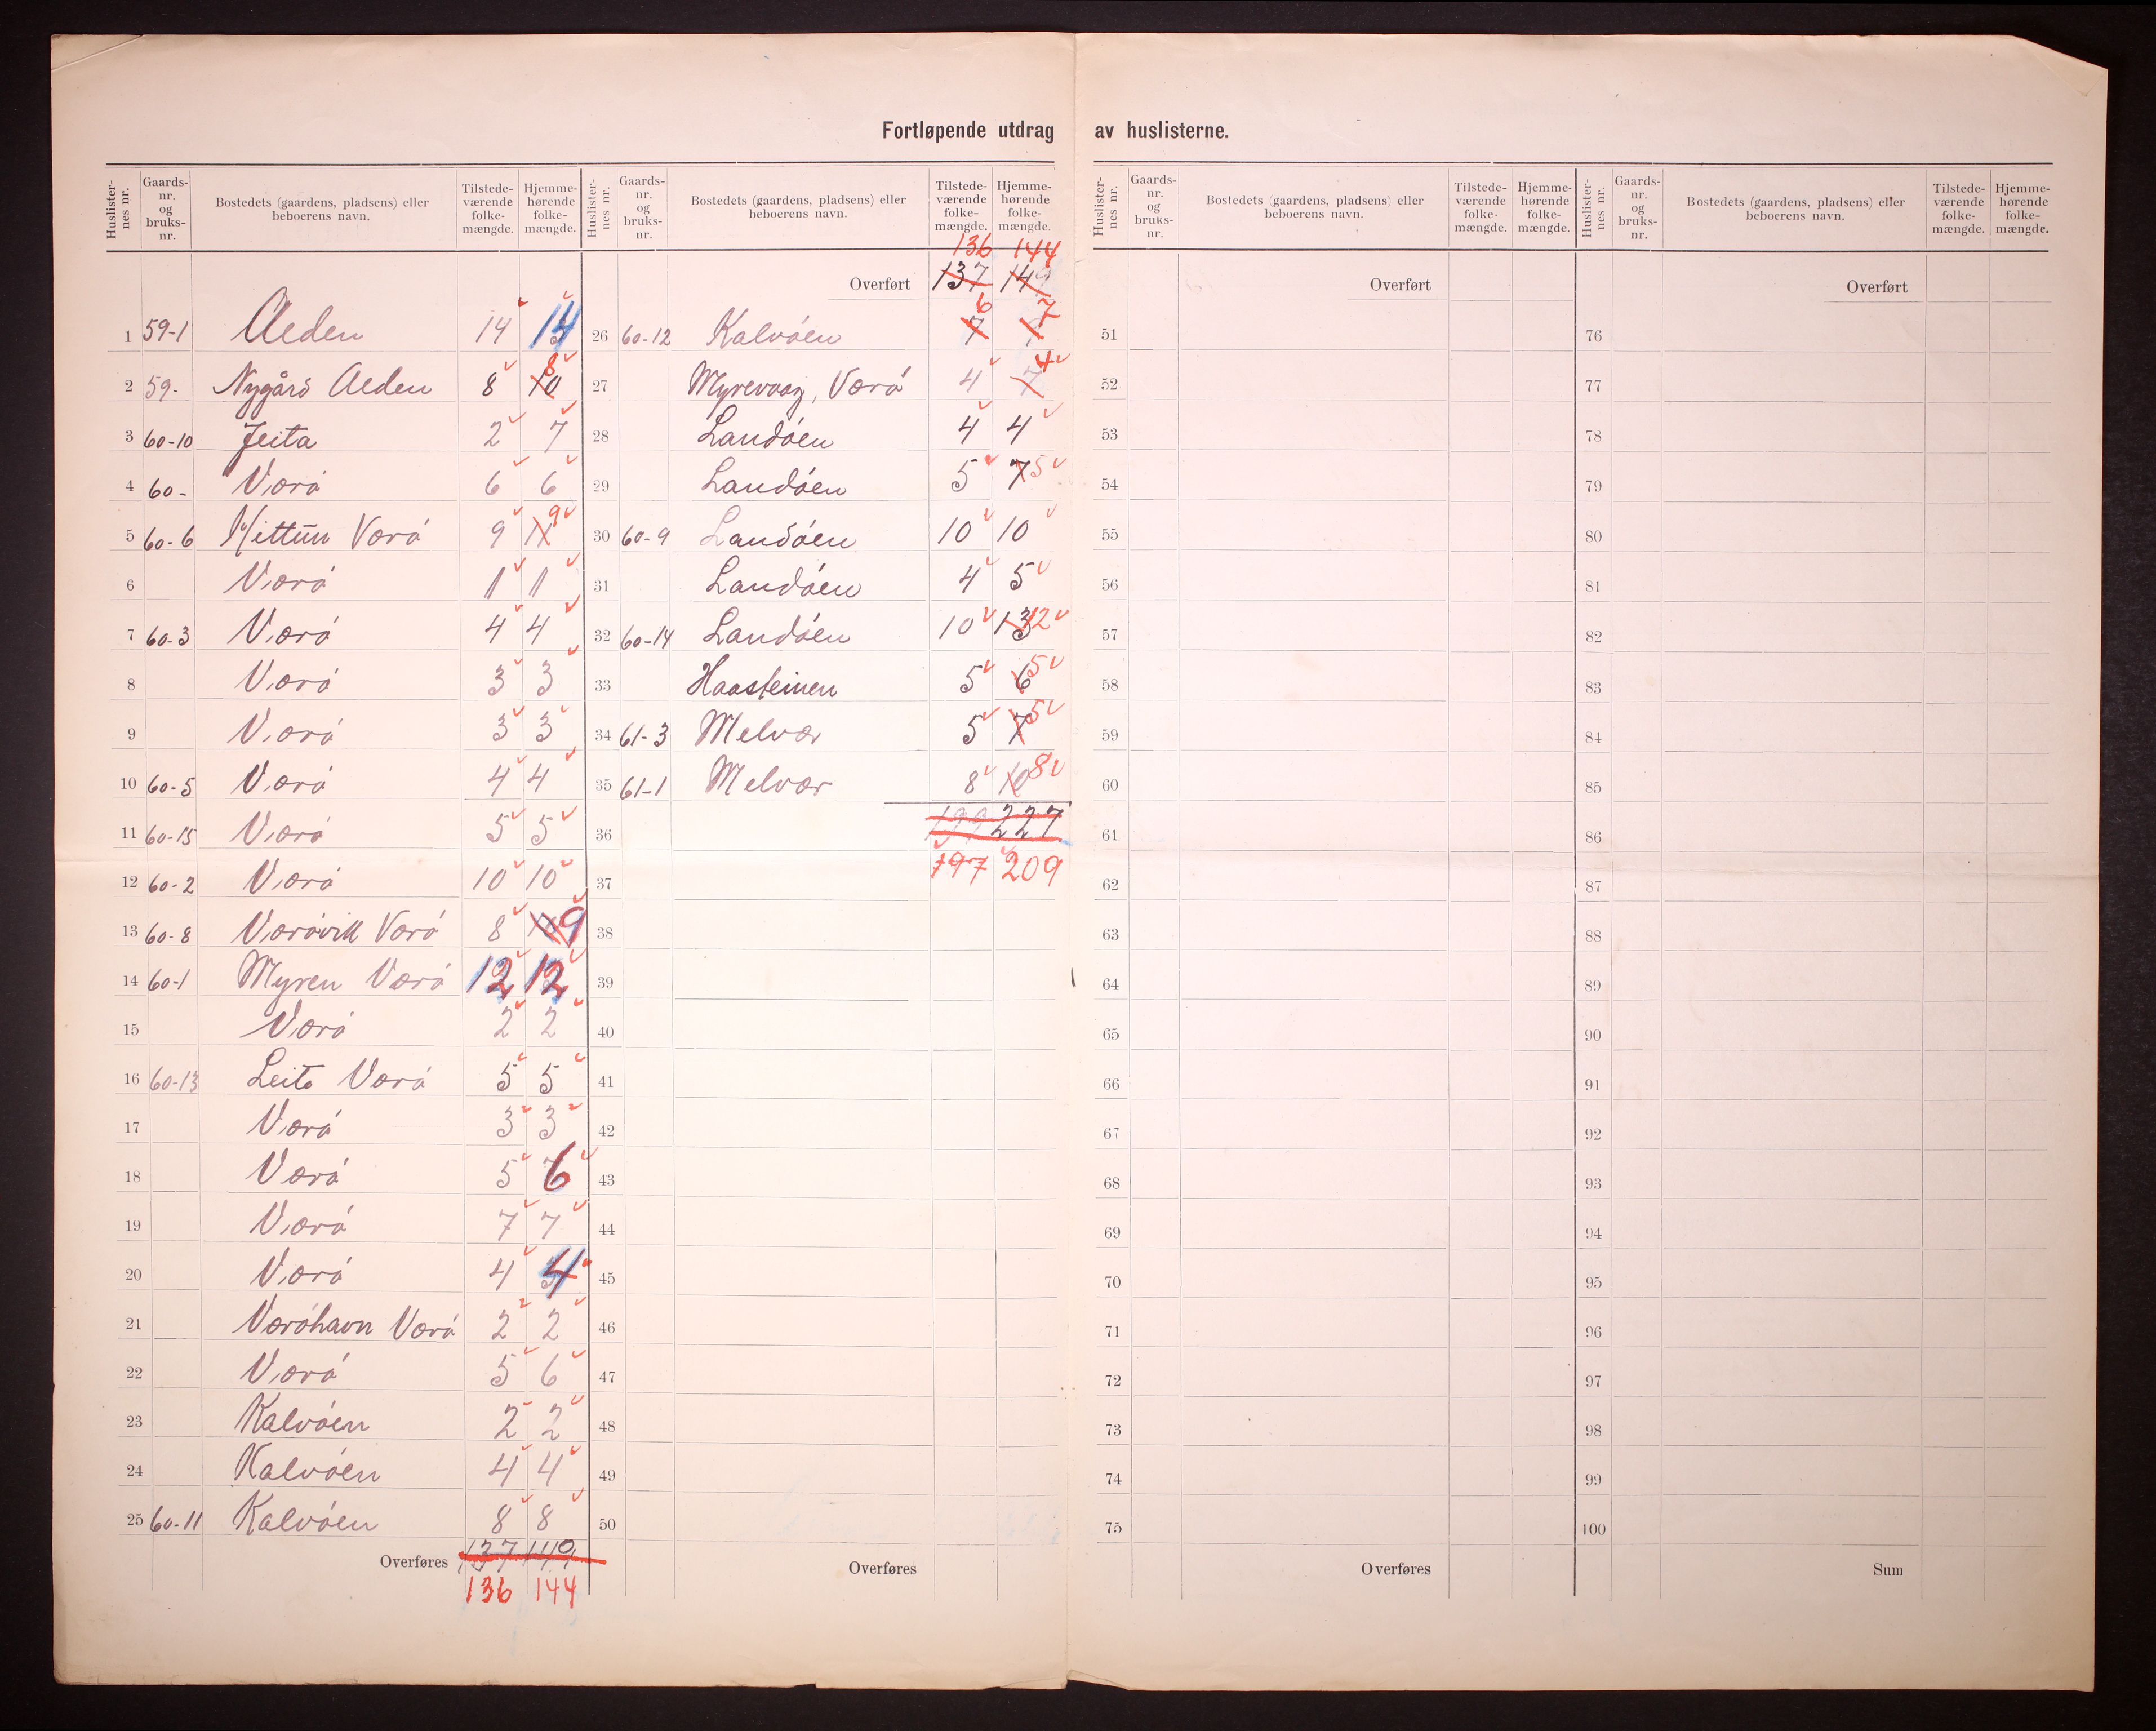 Fortløpende utdrag av huslisterne.
Huslister-nes nr. | Gaards-nr. og bruks-nr. | Bostedets (gaardens, pladsens) eller beboerens navn. | Tilstede-værende folke-mængde. | Hjemme-hørende folke-mængde.
1 59-1 Alden 14 14
2 59- Nygård Alden 8 10 8
3 60-10 Jeita 2 7
4 60- Værö 6 6
5 60-6 Mittun Værö 9 11 9
6 Værö 1 1
7 60-3 Værö 4 4
8 Værö 3 3
9 Værö 3 3
10 60-5 Værö 4 4
11 60-15 Værö 5 5
12 60-2 Værö 10 10
13 60-8 Værövik Værö 8 9
14 60-1 Myren Værö 12 12
15 Værö 2 2
16 60-13 Leite Værö 5 5
17 Værö 3 3
18 Værö 5 6
19 Værö 7 7
20 Værö 4 4
21 Væröhavn Værö 2 2
22 Værö 5 6
23 Kalvöen 2 2
24 Kalvöen 4 4
25 60-11 Kalvöen 8 8
Overføres 137 149
136 144
Huslister-nes nr. | Gaards-nr. og bruks-nr. | Bostedets (gaardens, pladsens) eller beboerens navn. | Tilstede-værende folke-mængde. | Hjemme-hørende folke-mængde.
136 144
Overført 137 149
26 60-12 Kalvöen 7 6 7
27 Myrevaag, Værö 4 7 4
28 Landöen 4 4
29 Landöen 5 7 5
30 60-9 Landöen 10 10
31 Landöen 4 5
32 60-14 Landöen 10 13 12
33 Haasteinen 5 6 5
34 61-3 Melvær 5 7 5
35 61-1 Melvær 8 10 8
36 199 227
37 197 209
38
39
40
41
42
43
44
45
46
47
48
49
50
Overføres
Huslister-nes nr. | Gaards-nr. og bruks-nr. | Bostedets (gaardens, pladsens) eller beboerens navn. | Tilstede-værende folke-mængde. | Hjemme-hørende folke-mængde.
Overført
51
52
53
54
55
56
57
58
59
60
61
62
63
64
65
66
67
68
69
70
71
72
73
74
75
Overføres
Huslister-nes nr. | Gaards-nr. og bruks-nr. | Bostedets (gaardens, pladsens) eller beboerens navn. | Tilstede-værende folke-mængde. | Hjemme-hørende folke-mængde.
Overført
76
77
78
79
80
81
82
83
84
85
86
87
88
89
90
91
92
93
94
95
96
97
98
99
100
Sum